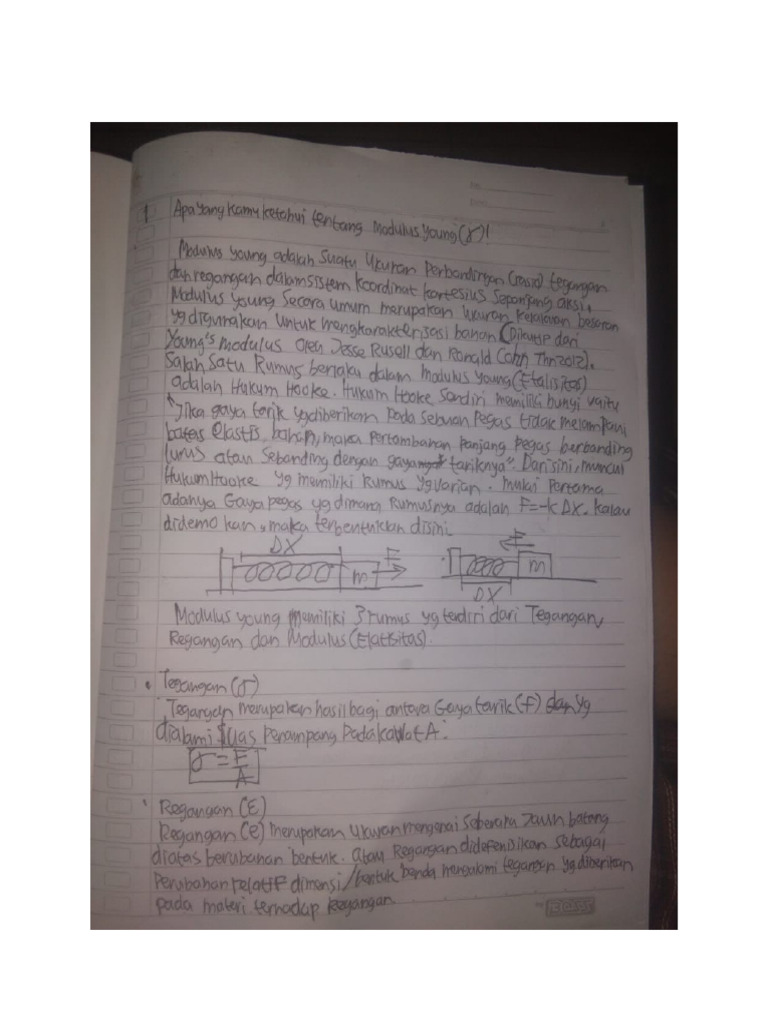 1 Apa yang kamu ketahui tentang Modulus Young (γ)!
Modulus young adalah suatu Ukuran Perbandingan (rasio) tegangan
dan regangan dalam sistem koordinat kartesius sepanjang aksi.
Modulus young Secara umum merupakan ukuran kekakuan besaran
yg digunakan untuk mengkarakterisasi bahan (Dikutip dari
Young's modulus oleh Jesse Rusell dan Ronald Cohn Thn 2012).
Salah Satu Rumus berlaku dalam modulus young (Etalisitas)
adalah Hukum Hooke. Hukum Hooke Sendiri memiliki bunyi yaitu
"Jika gaya tarik yg diberikan Pada sebuah Pegas tidak melampaui
batas elastis bahan, maka Pertambahan panjang pegas berbanding
lurus atau Sebanding dengan gaya tariknya". Dari sini, muncul
Hukum Hooke yg memiliki Rumus yg varian. Mulai Pertama
adanya Gaya pegas yg dimana Rumusnya adalah F=-kΔX. Kalau
didemo kan, maka terbentuklah disini
ΔX F m
F m ΔX
Modulus young Memiliki 3 rumus yg terdiri dari Tegangan,
Regangan dan Modulus (Elatisitas)
• Tegangan (σ)
Tegangan merupakan hasil bagi antara Gaya tarik (F) dan yg
dialami luas Penampang Pada kawat A.
σ = F/A
• Regangan (E)
Regangan (e) merupakan ukuran mengenai seberapa Jauh batang
diatas berubahan bentuk. atau Regangan didefenisikan sebagai
Perubahan relatif dimensi/bentuk benda mengalami tegangan yg diberikan
pada materi terhadap Regangan.